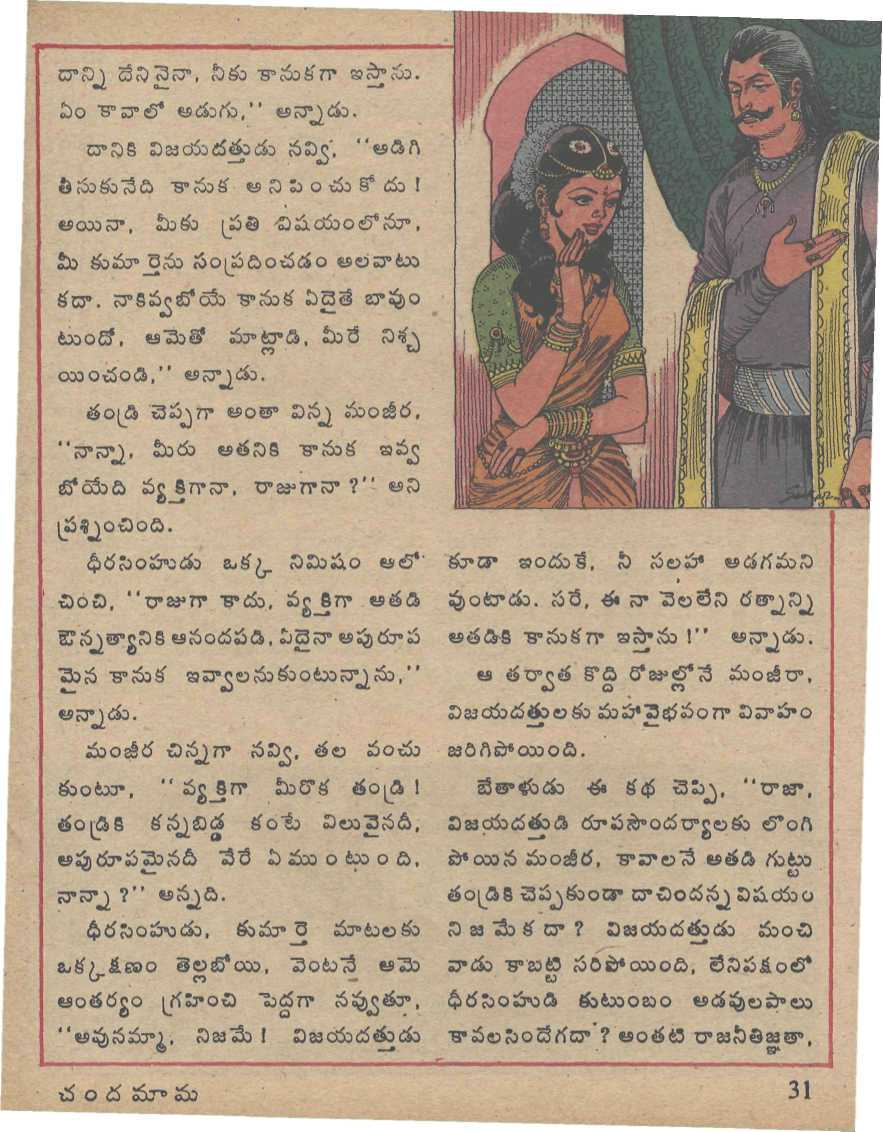 దాన్ని దేనినైనా, నీకు కానుకగా ఇస్తాను.
ఏం కావాలో అడుగు,'' అన్నాడు.
దానికి విజయదత్తుడు నవ్వి, ''అడిగి
తీసుకునేది కానుక అనిపించుకోదు!
అయినా, మీకు ప్రతి విషయంలోనూ,
మీ కుమార్తెను సంప్రదించడం అలవాటు
కదా. నాకివ్వబోయే కానుక ఏదైతే బావుం
టుందో, ఆమెతో మాట్లాడి, మీరే నిశ్చ
యించండి,'' అన్నాడు.
తండ్రి చెప్పగా అంతా విన్న మంజీర,
''నాన్నా, మీరు అతనికి కానుక ఇవ్వ
బోయేది వ్యక్తిగానా, రాజుగానా?'' అని
ప్రశ్నించింది.
ధీరసింహుడు ఒక్క నిమిషం ఆలో
చించి, ''రాజుగా కాదు, వ్యక్తిగా అతడి
ఔన్నత్యానికి ఆనందపడి, ఏదైనా అపురూప
మైన కానుక ఇవ్వాలనుకుంటున్నాను,''
అన్నాడు.
మంజీర చిన్నగా నవ్వి, తల వంచు
కుంటూ, ''వ్యక్తిగా మీరొక తండ్రి!
తండ్రికి కన్నబిడ్డ కంటే విలువైనదీ,
అపురూపమైనదీ వేరే ఏముంటుంది,
నాన్నా?'' అన్నది.
ధీరసింహుడు, కుమార్తె మాటలకు
ఒక్కక్షణం తెల్లబోయి, వెంటనే ఆమె
ఆంతర్యం గ్రహించి పెద్దగా నవ్వుతూ,
''అవునమ్మా, నిజమే! విజయదత్తుడు
కూడా ఇందుకే, నీ సలహా అడగమని
వుంటాడు. సరే, ఈ నా వెలలేని రత్నాన్ని
అతడికి కానుకగా ఇస్తాను!'' అన్నాడు.
ఆ తర్వాత కొద్ది రోజుల్లోనే మంజీరా,
విజయదత్తులకు మహావైభవంగా వివాహం
జరిగిపోయింది.
బేతాళుడు ఈ కథ చెప్పి, ''రాజా,
విజయదత్తుడి రూపసౌందర్యాలకు లొంగి
పోయిన మంజీర, కావాలనే అతడి గుట్టు
తండ్రికి చెప్పకుండా దాచిందన్న విషయం
నిజమేకదా? విజయదత్తుడు మంచి
వాడు కాబట్టి సరిపోయింది, లేనిపక్షంలో
ధీరసింహుడి కుటుంబం అడవులపాలు
కావలసిందేగదా? అంతటి రాజనీతిజ్ఞతా,
చందమామ
31